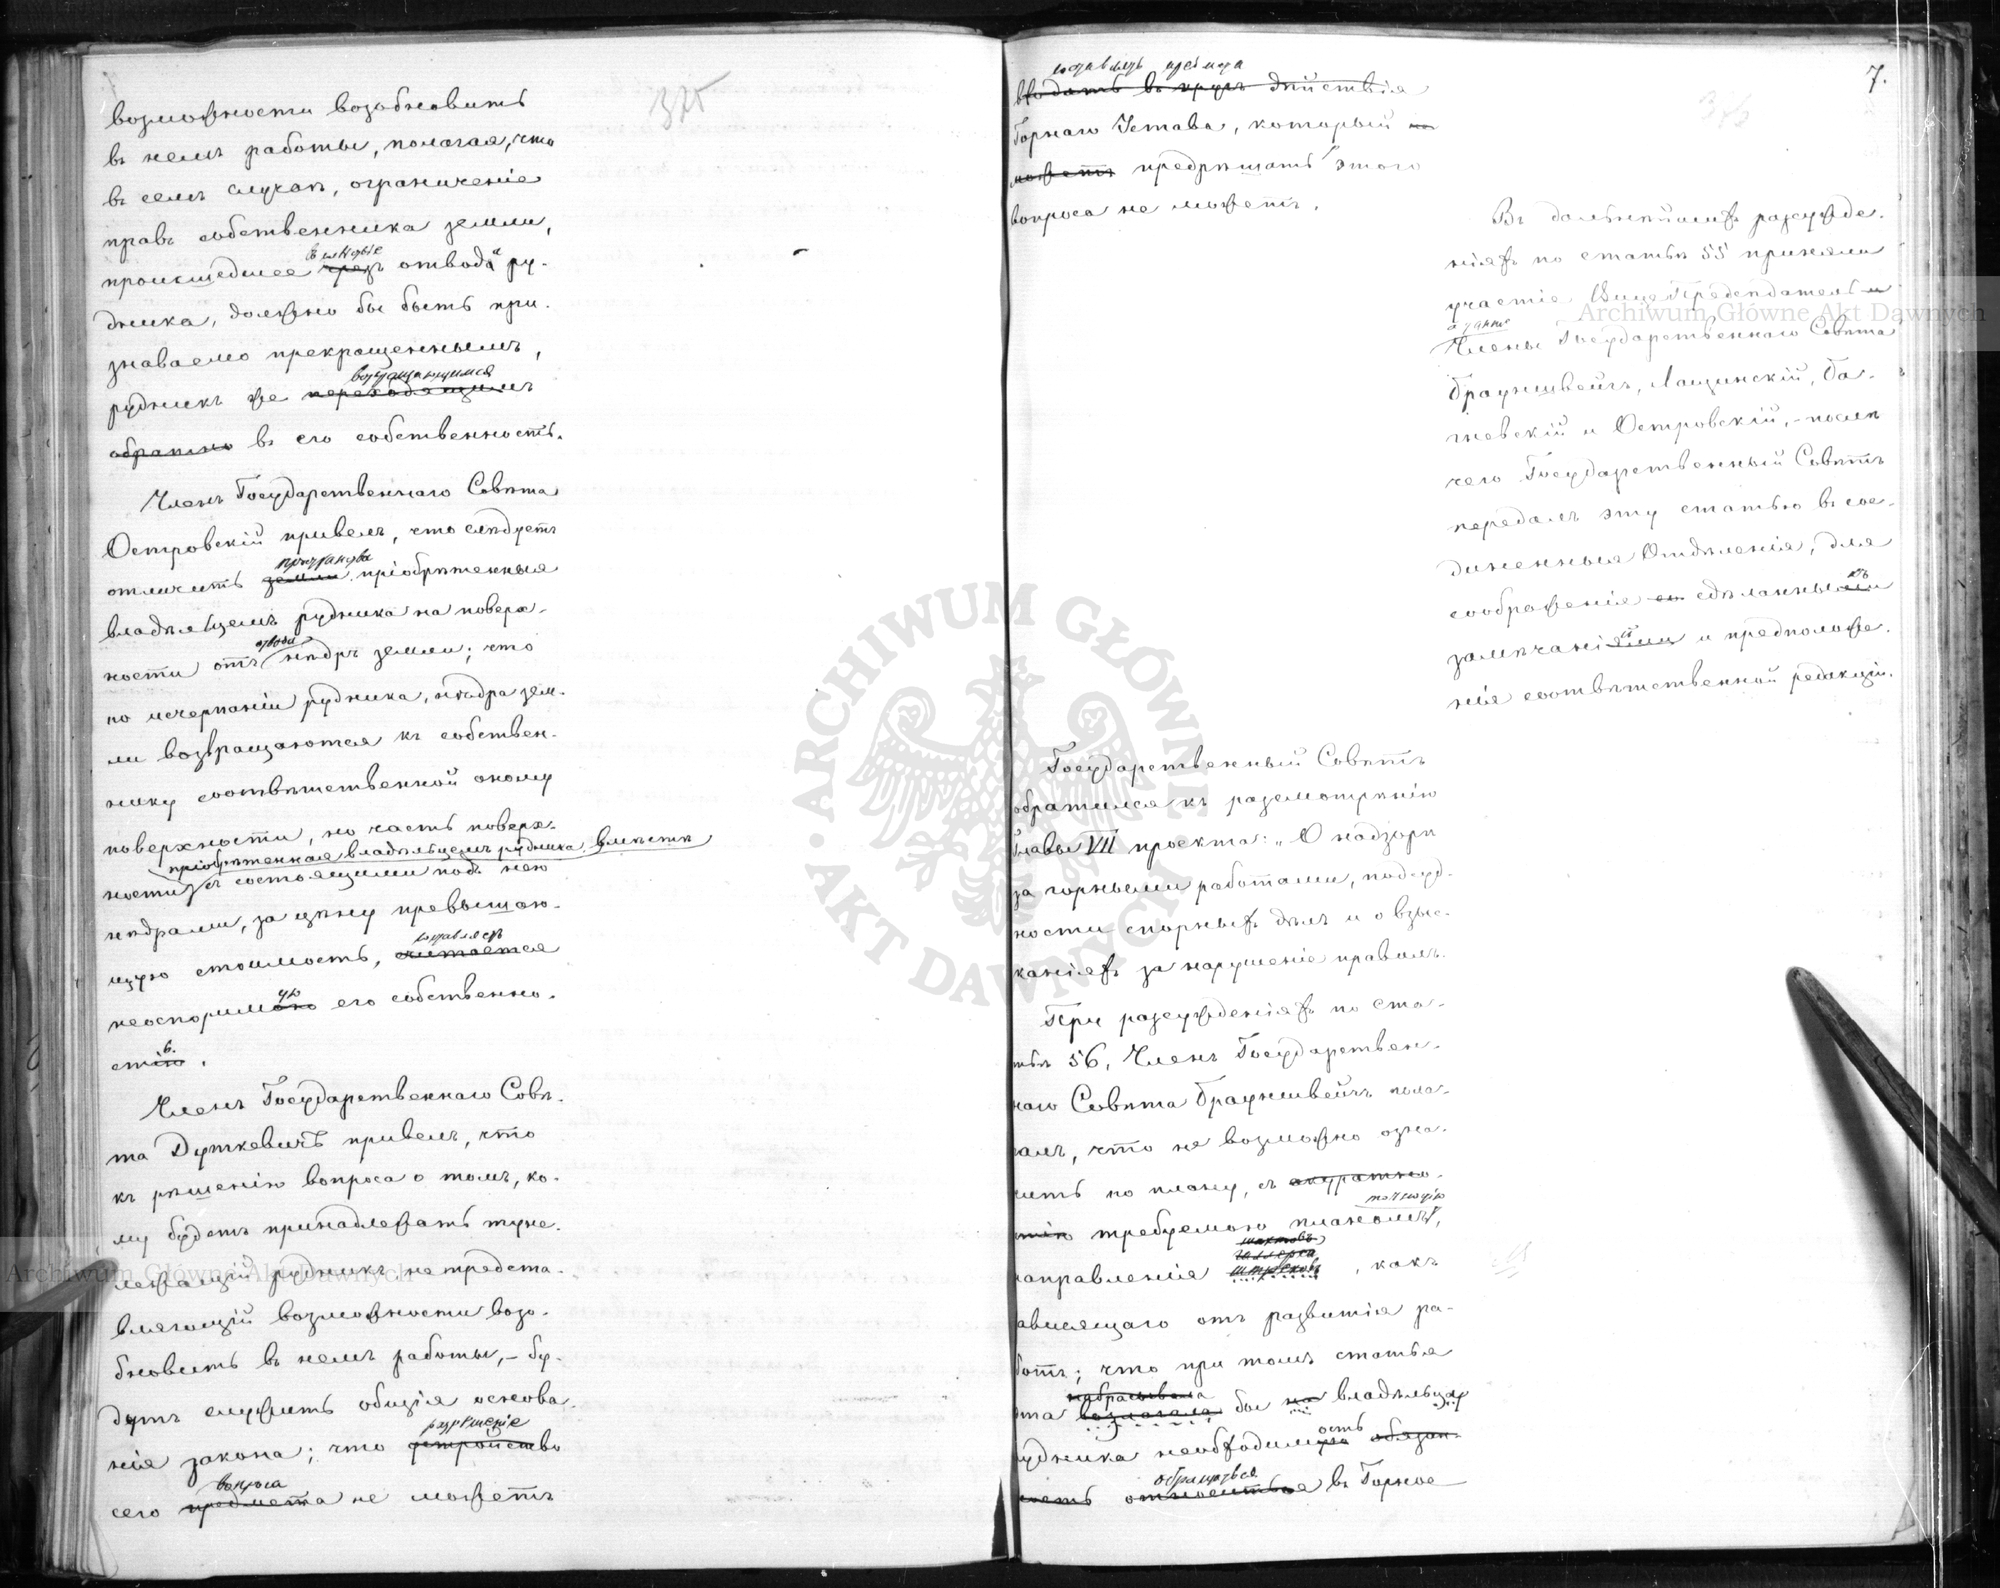 375
возможности возобновить
въ немъ работы, полагая, что
въ семъ случаѣ, ограниченіе
правъ собственника земли,
вслѣдствіе
происшедшее чрезъ отвода ру-
дника, должно бы быть при-
знаваемо прекращеннымъ,
возвращающимся
рудникъ же переходящимъ
обратно въ его собственность.
Членъ Государственнаго Совѣта
Островскій привелъ, что слѣдуетъ
пространства
отличить земли пріобрѣтенныя
владѣльцемъ рудника на поверх-
отвода
ности отъ нѣдръ земли; что
по исчерпаніи рудника, нѣдра зем-
ли возвращаются къ собствен-
нику соотвѣтственной оному
поверхности, но часть поверх-
пріобрѣтенная владѣльцемъ рудника вмѣстѣ
ности съ состоящими подъ нею
нѣдрами, за цѣну превышаю-
составляетъ
щую стоимость, считается
ую
неоспоримою его собственно-
ь.
стію.
Членъ Государственнаго Совѣ-
та Дуткевичъ привелъ, что
къ рѣшенію вопроса о томъ, ко-
му будетъ принадлежать туне-
лежащій рудникъ не предста-
вляющій возможности возо-
бновить въ немъ работы, – бу-
дутъ служить общія основа-
разрѣшеніе
нія закона; что устройство
вопроса
сего предмета не можетъ
7.
составлять предмета
входить въ кругъ дѣйствія
Горнаго Устава, который не
можетъ предрѣшать этого
вопроса не можетъ.
Въ дальнѣйшихъ разсужде-
ніяхъ по статьѣ 55 приняли
участіе Вице Предсѣдатель и
а также
Члены Государственнаго Совѣта
Брауншвейгъ, Лащинскій, Ба-
гневскій и Островскій, – послѣ
чего Государственный Совѣтъ
передалъ эту статью въ сое-
диненныя Отдѣленія, для
хъ
соображенія съ сдѣланными
й
замѣчаніями и предположе-
нія соотвѣтственной редакціи.
Государственный Совѣтъ
обратился къ разсмотрѣнію
Главы VII проекта: „О надзорѣ
за горными работами, подсуд-
ности спорныхъ дѣлъ и о взыс-
каніяхъ за нарушеніе правилъ.
При разсужденіяхъ по ста-
тьѣ 56, Членъ Государствен-
наго Совѣта Брауншвейгъ пола-
галъ, что не возможно озна-
чить по плану, съ акуратно-
точностію
стію требуемою планомъ,
шахтовъ
галлереи
направленія штрековъ, какъ
зависящаго отъ развитія ра-
ботъ; что при томъ статья
набрасывала
эта возлагала бы на владѣльцах
ость
рудника необходимую обязан-
обращаться
ность относиться въ Горное
Archiwum Główne Akt Dawnych
Archiwum Główne Akt Dawnych
ARCHIWUM GŁÓWNE · AKT DAWNYCH ·